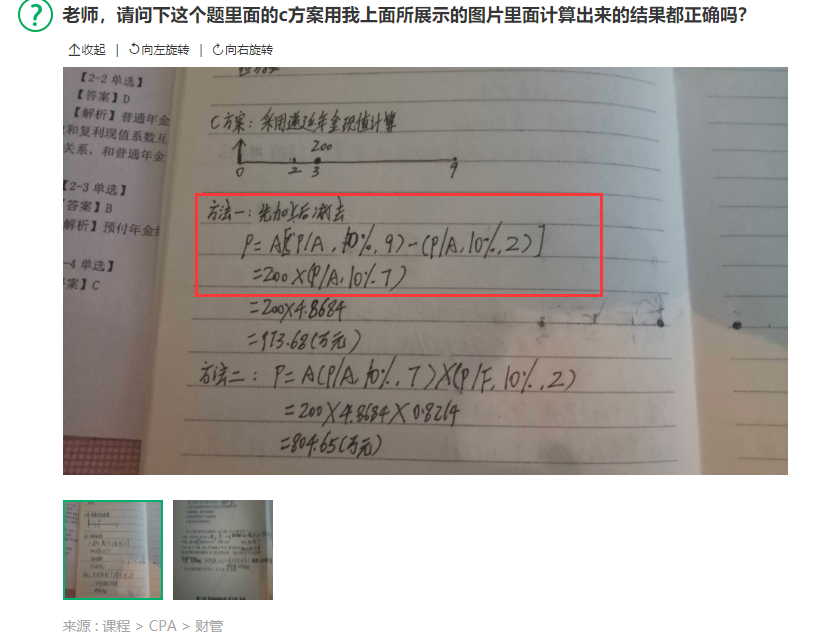 老师，请问下这个题里面的c方案用我上面所展示的图片里面计算出来的结果都正确吗？
收起 | 向左旋转 | 向右旋转
【2-2 单选】
【答案】D
【解析】普通年金
和复利现值系数互
关系，和普通年金
【2-3 单选】
答案】B
解析】预付年金
-4 单选】
案】C
C方案：采用递延年金现值计算
200
0 2 3 9
方法一：先加上后减去
P=A[(P/A,10%,9)-(P/A,10%,2)]
=200×(P/A,10%.7)
=200×4.8684
=973.68(万元)
方法二：P=A(P/A,10%,7)×(P/F,10%,2)
=200×4.8684×0.8264
=804.65(万元)
来源：课程 > CPA > 财管